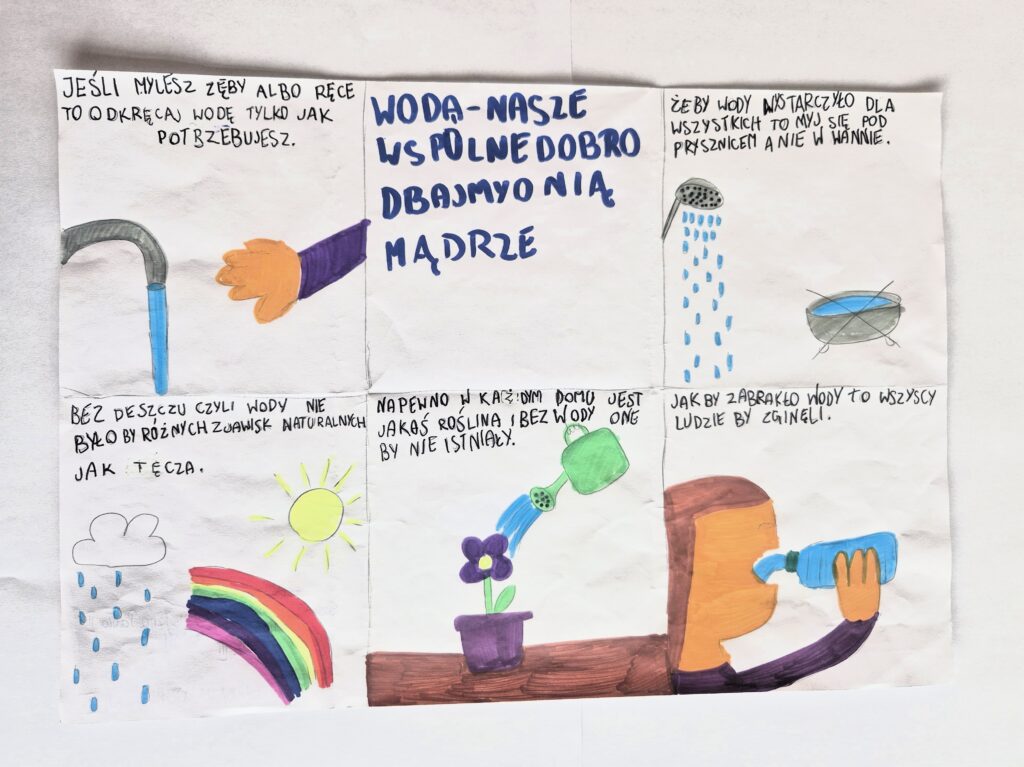 JEŚLI MYLESZ ZĘBY ALBO RĘCE
TO ODKRĘCAJ WODĘ TYLKO JAK
POTRZEBUJESZ.
WODA-NASZE
WSPÓLNE DOBRO
DBAJMY O NIĄ
MĄDRZE
ŻEBY WODY WYSTARCZYŁO DLA
WSZYSTKICH TO MYJ SIĘ POD
PRYSZNICEM A NIE W WANNIE.
BEZ DESZCZU CZYLI WODY NIE
BYŁO BY RÓŻNYCH ZJAWISK NATURALNYCH
JAK TĘCZA.
NAPEWNO W KAŻDYM DOMU JEST
JAKAŚ ROŚLINA I BEZ WODY ONE
BY NIE ISTNIAŁY.
JAK BY ZABRAKŁO WODY TO WSZYSCY
LUDZIE BY ZGINĘLI.